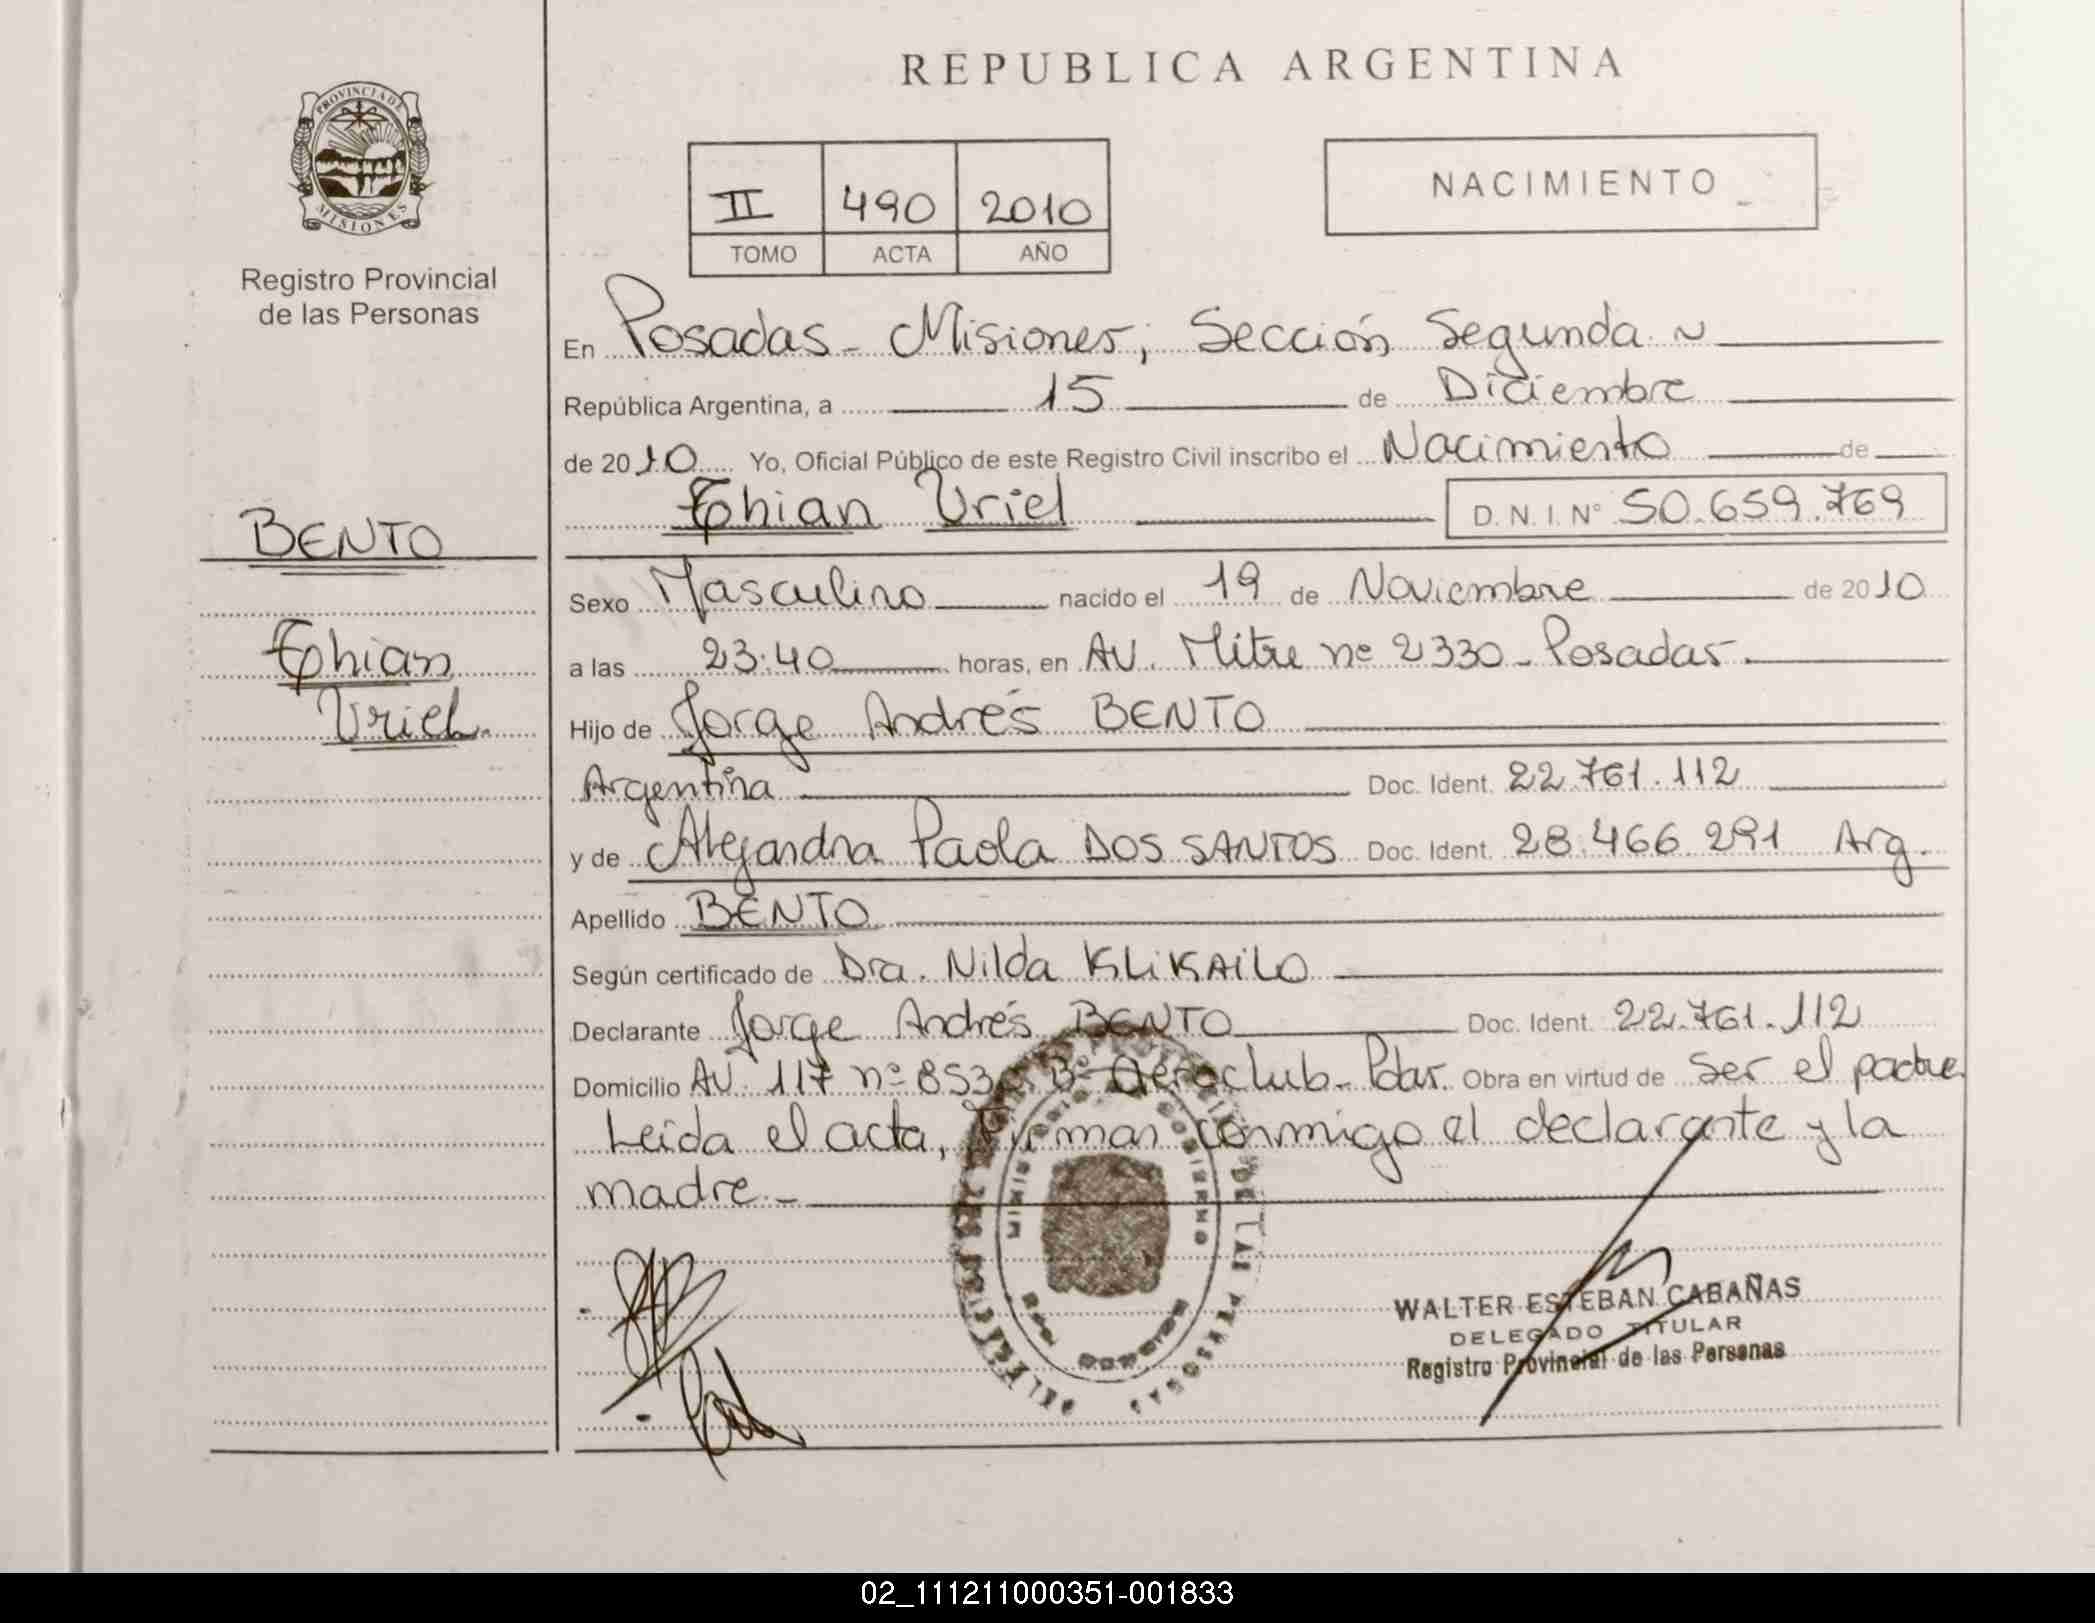 PROVINCIA DE
MISIONES
Registro Provincial
de las Personas
BENTO
Thian
Uriel.
REPUBLICA ARGENTINA
II 490 2010
TOMO ACTA AÑO
NACIMIENTO
En Posadas - Misiones; Sección Segunda ~
República Argentina, a 15 de Diciembre
de 2010 Yo, Oficial Público de este Registro Civil inscribo el Nacimiento de
Thian Uriel D.N.I. N° 50.659.769
Sexo Masculino nacido el 19 de Noviembre de 2010
a las 23:40 horas, en Av. Mitre nº 2330 - Posadas.
Hijo de Jorge Andrés BENTO
Argentina Doc. Ident. 22.761.112
y de Alejandra Paola DOS SANTOS Doc. Ident. 28.466.291 Arg.
Apellido BENTO
Según certificado de Dra. Nilda KLIKAILO
Declarante Jorge Andrés BENTO Doc. Ident. 22.761.112
Domicilio AV. 117 nº 853 Bº Aeroclub - Pdas. Obra en virtud de ser el padre.
Leída el acta, firman conmigo el declarante y la
madre. -
MINISTERIO GOBIERNO
DE LAS PERSONAS
WALTER ESTEBAN CABAÑAS
DELEGADO TITULAR
Registro Provincial de las Personas
02_111211000351-001833